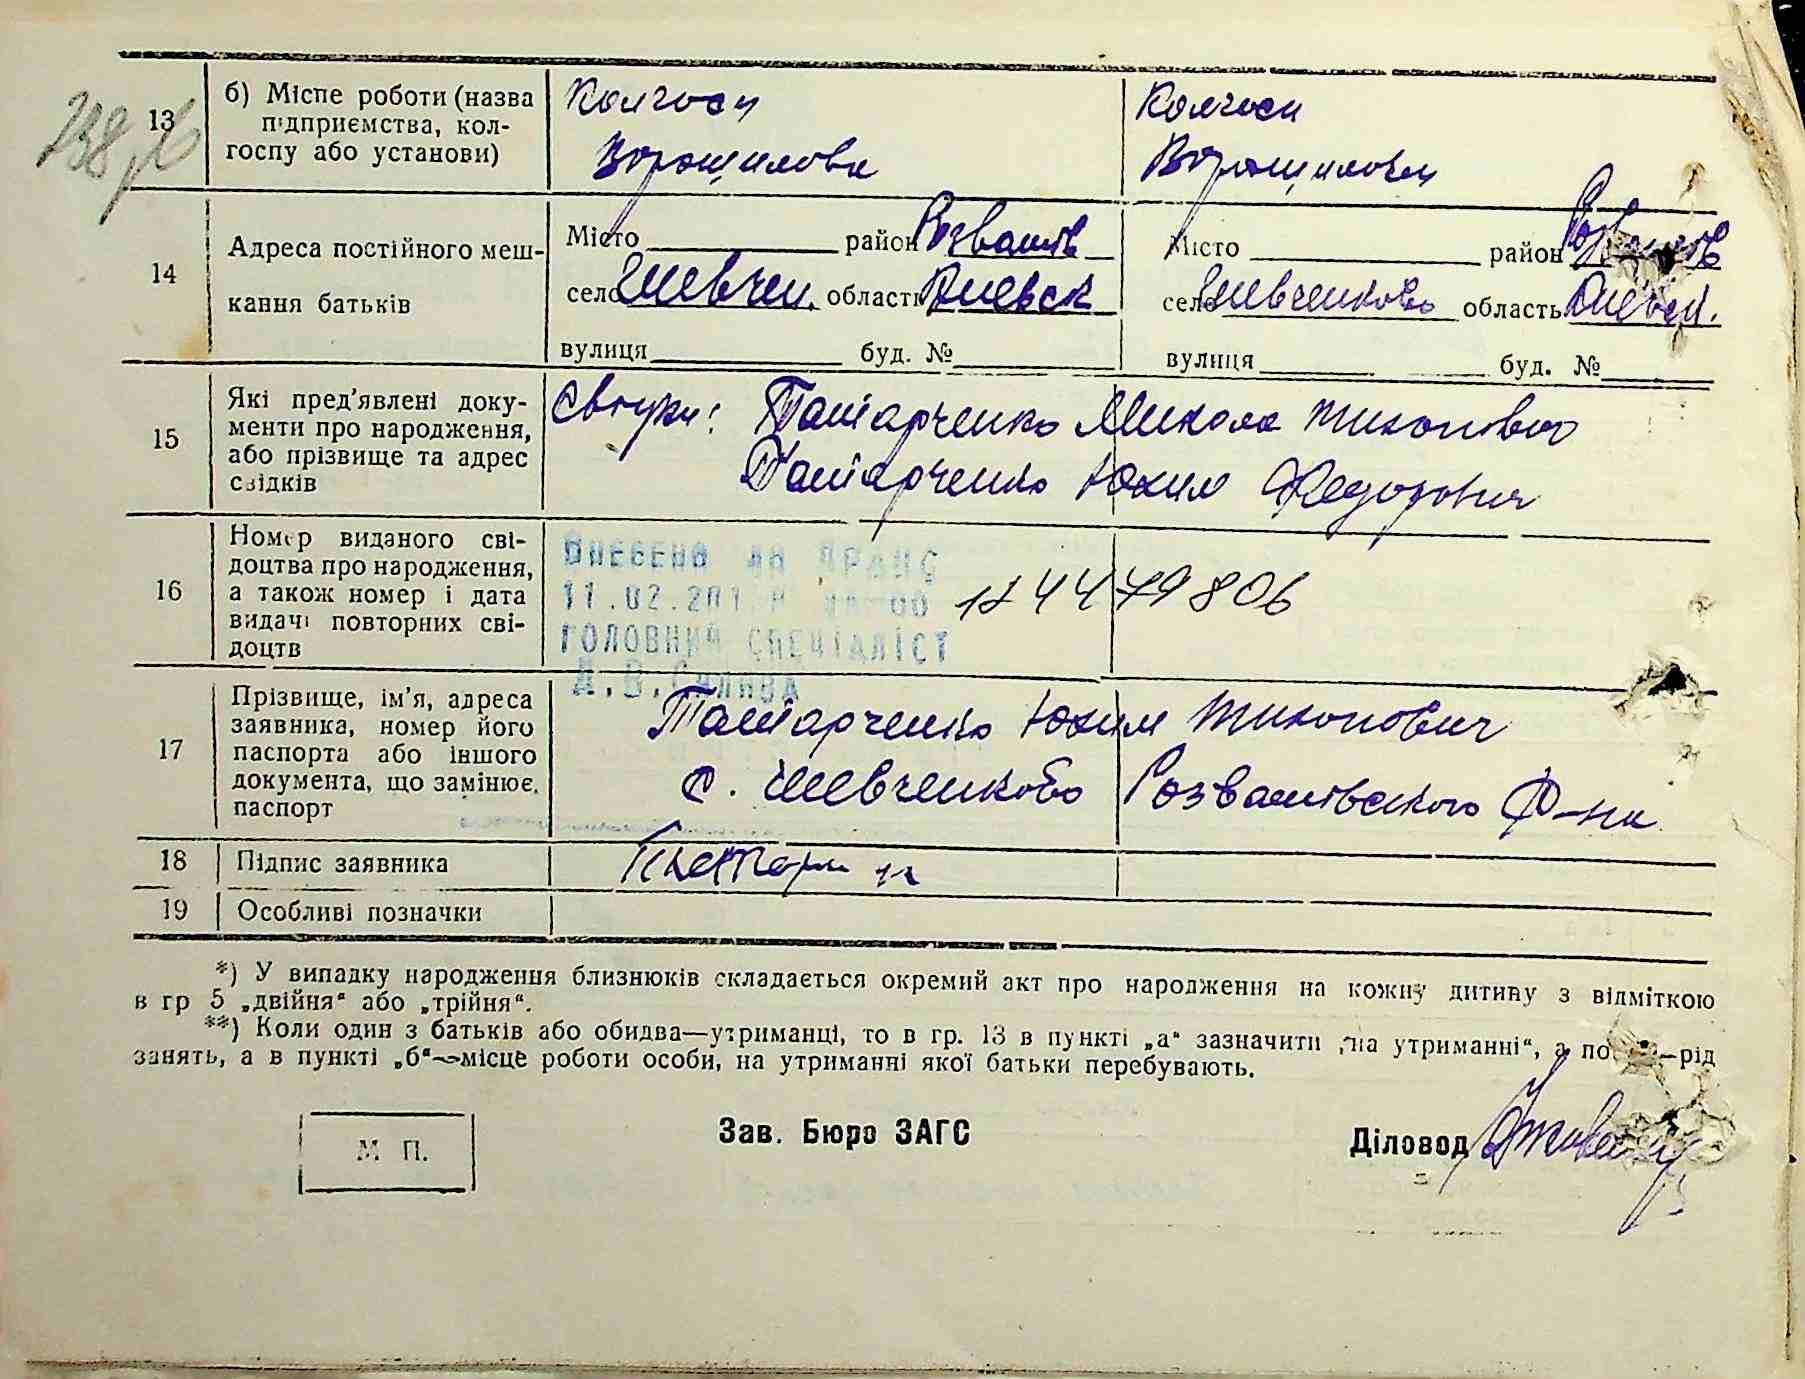 13 б) Місце роботи (назва Колгосп Колгосп
підприємства, кол-
госпу або установи) Ворошилова Ворошилова
14 Адреса постійного меш-
кання батьків
Місто район Розважів Місто район
село Шевчен. область Киевск село Шевченково область Киевск.
вулиця буд. № вулиця буд. №
15 Які пред'явлені доку-
менти про народження,
або прізвище та адрес
свідків
Свідки: Татарченко Микола Тихонович
Татарченко Юхим Федорович
16 Номер виданого сві-
доцтва про народження,
а також номер і дата
видачі повторних сві-
доцтв
ВНЕСЕНО ДО ДРАЦС
11.02.201
ГОЛОВНИЙ СПЕЦІАЛІСТ
4479806
17 Прізвище, ім'я, адреса
заявника, номер його
паспорта або іншого
документа, що замінює
паспорт
Татарченко Юхим Тихонович
с. Шевченково Розважівского Р-на
18 Підпис заявника
19 Особливі позначки
*) У випадку народження близнюків складається окремий акт про народження на кожну дитину з відміткою
в гр 5 „двійня“ або „трійня“.
**) Коли один з батьків або обидва—утриманці, то в гр. 13 в пункті „а“ зазначити „на утриманні“, а по —рід
занять, а в пункті „б“—місце роботи особи, на утриманні якої батьки перебувають.
М П. Зав. Бюро ЗАГС Діловод